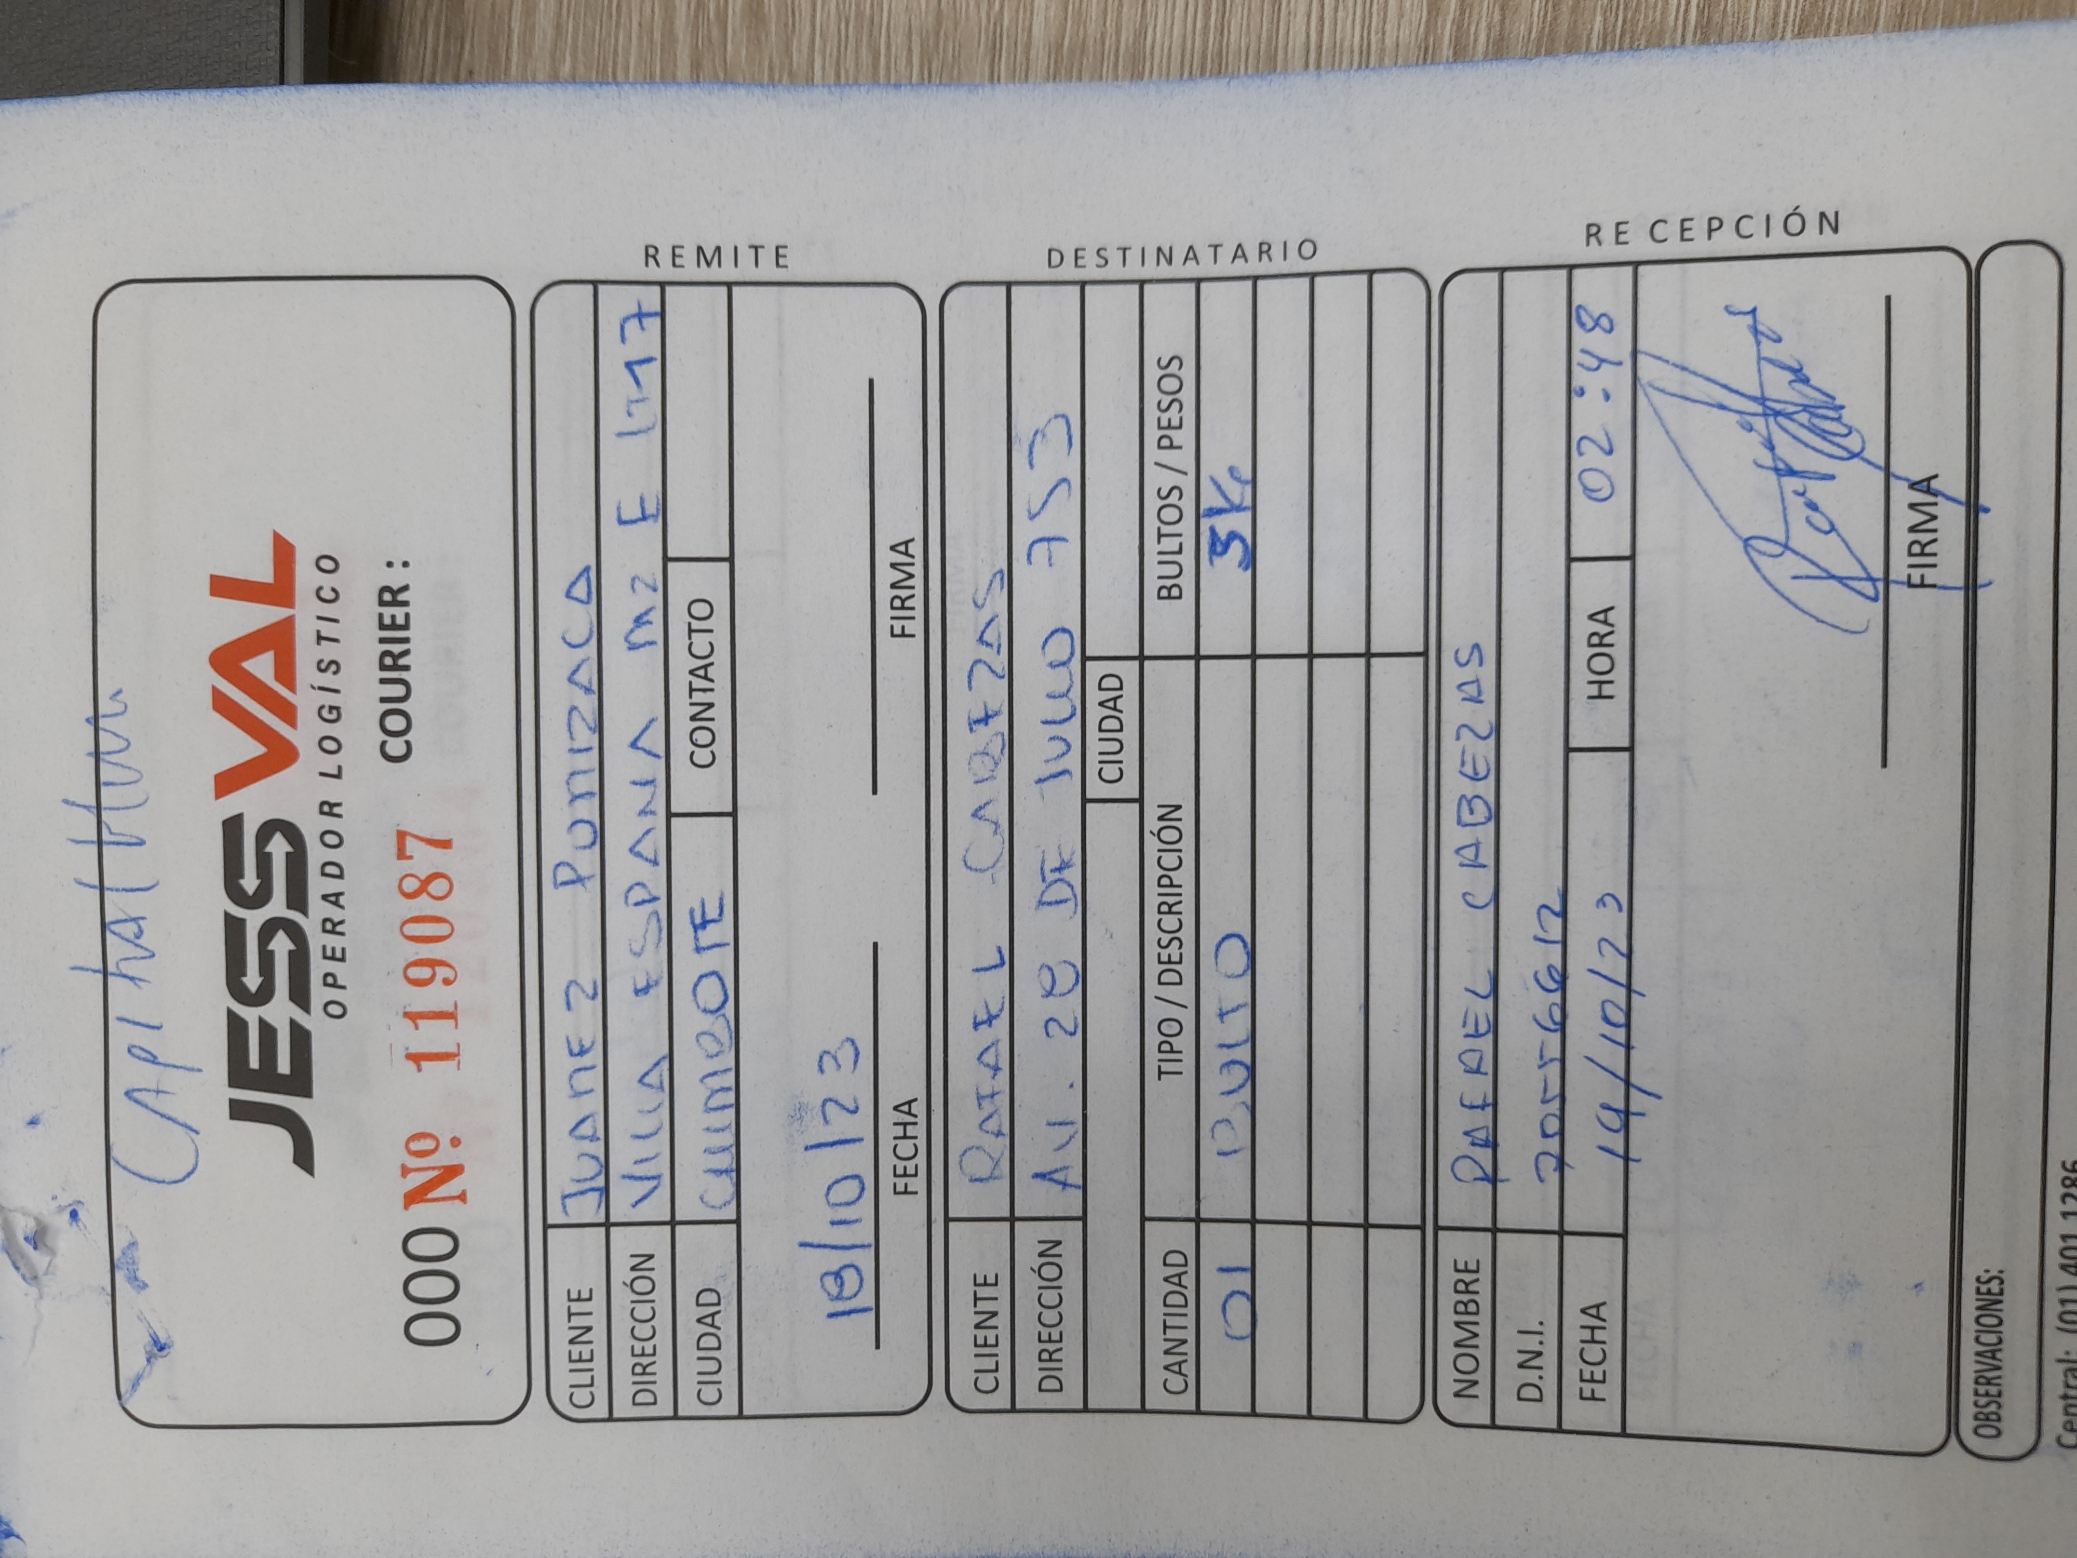 Capital Hum
JESSVAL
OPERADOR LOGÍSTICO
000 Nº. 119087 COURIER :
CLIENTE JUANEZ PUMIZACA
DIRECCIÓN VILLA ESPANA MZ E LT17
CIUDAD CHIMBOTE CONTACTO
18/10/23
FECHA FIRMA
REMITE
CLIENTE RAFAEL CABEZAS
DIRECCIÓN AV. 28 DE JULIO 753
CIUDAD
CANTIDAD TIPO / DESCRIPCIÓN BULTOS / PESOS
01 BULTO 3KG
DESTINATARIO
NOMBRE RAFAEL CABEZAS
D.N.I. 70556612
FECHA 19/10/23 HORA 02:48
Rafael Cabezas
FIRMA
RECEPCIÓN
OBSERVACIONES:
Central: (01) 401 1286